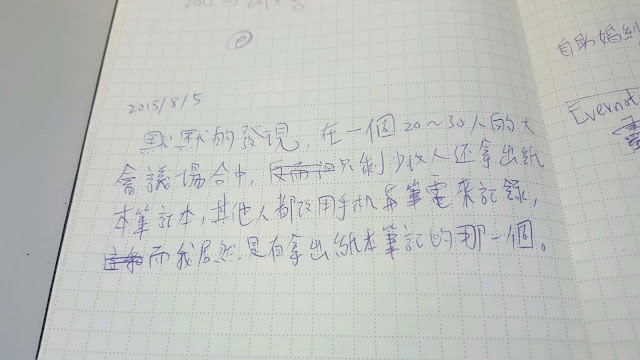 2015/8/5
默默的發現，在一個20～30人的大
會議場合中，只剩少数人还拿出紙
本筆記本，其他人都改用手机與筆電來記錄，
而我居然是有拿出紙本筆記的那一個。
自助婚紗
Evernot